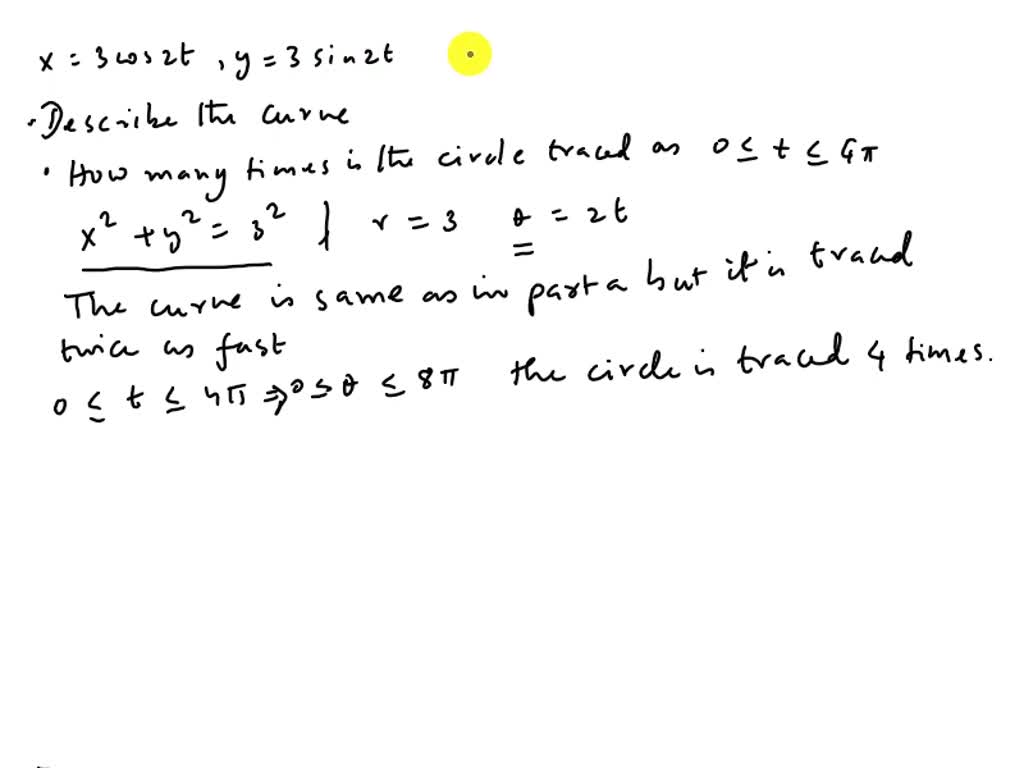 x = 3 cos 2t , y = 3 sin 2t
• Describe the curve
• How many times is the circle traced as 0 ≤ t ≤ 4π
x² + y² = 3² | r = 3 θ = 2t
The curve is same as in part a but it is traced
twice as fast
0 ≤ t ≤ 4π ⇒ 0 ≤ θ ≤ 8π the circle is traced 4 times.